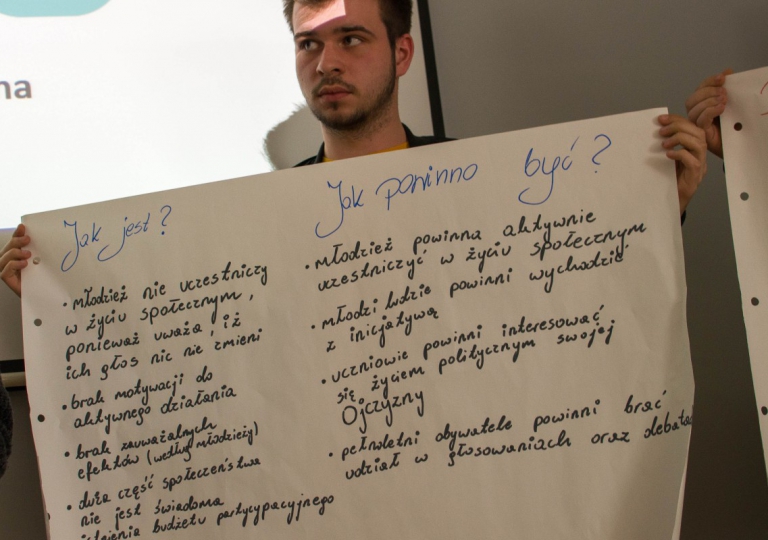 na
Jak jest?
• młodzież nie uczestniczy
w życiu społecznym,
ponieważ uważa, iż
ich głos nic nie zmieni
• brak motywacji do
aktywnego działania
• brak zauważalnych
efektów (według młodzieży)
• duża część społeczeństwa
nie jest świadoma
istnienia budżetu partycypacyjnego
Jak powinno być?
• młodzież powinna aktywnie
uczestniczyć w życiu społecznym
• młodzi ludzie powinni wychodzić
z inicjatywą
• uczniowie powinni interesować
się życiem politycznym swojej
Ojczyzny
• pełnoletni obywatele powinni brać
udział w głosowaniach oraz debata